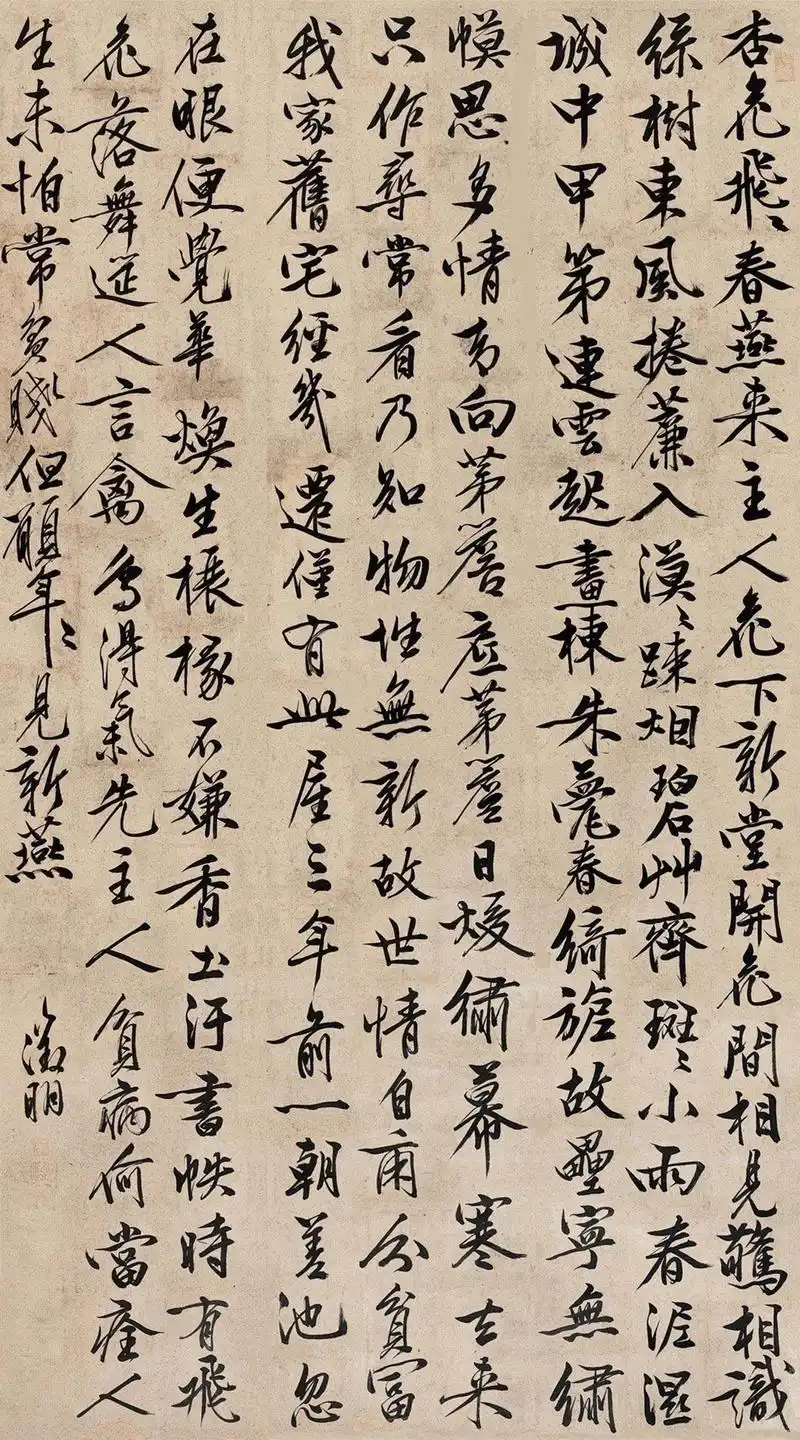 杏花飛飛春燕來主人花下新堂開花間相見驚相識
綠樹東風捲簾入漠漠疎烟碧艸齊斑斑小雨春泥濕
城中甲第連雲起畫棟朱甍春綺旎故壘寧無繡
幙思多情幸向茅簷庇茅簷日煖繡幕寒古來
只作尋常看乃知物性無新故世情自爾分貧富
我家舊宅經幾遷僅有此屋三年前一朝差池忽
在眼便覺華煥生榱椽不嫌香土汙書帙時有飛
花落舞筵人言禽鳥得氣先主人貧病何當痊人
生未怕常貧賤但願年年見新燕
徵明